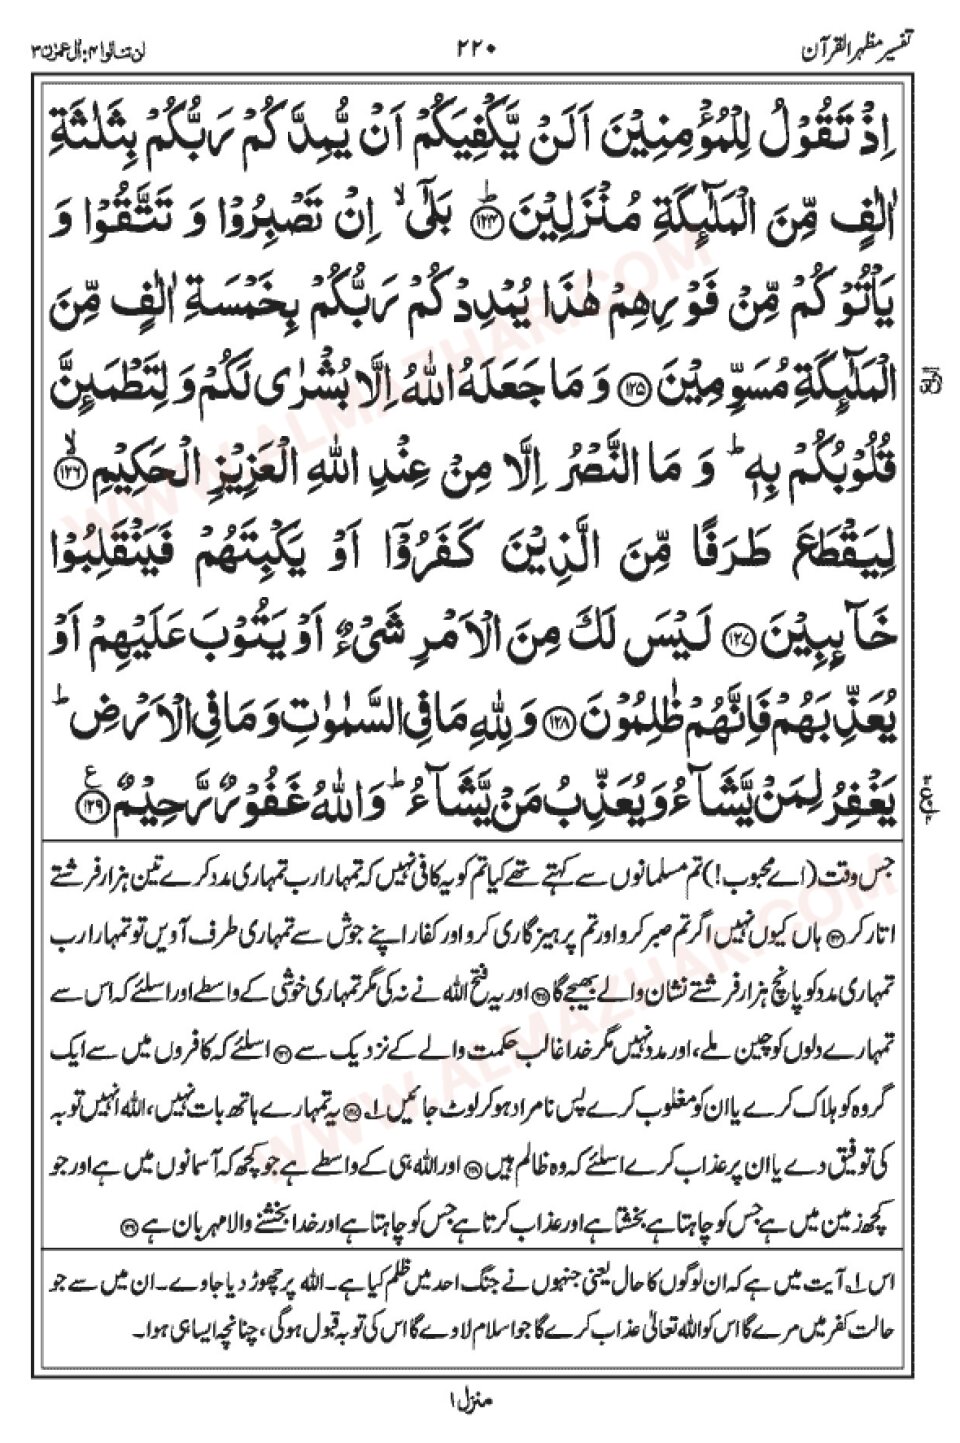 تفسیر مظہر القرآن
۲۲۰
لن تنالوا ۴: اٰل عمرٰن ۳
اِذْ تَقُوْلُ لِلْمُؤْمِنِيْنَ اَلَنْ يَّكْفِيَكُمْ اَنْ يُّمِدَّكُمْ رَبُّكُمْ بِثَلٰثَةِ
اٰلٰفٍ مِّنَ الْمَلٰٓئِكَةِ مُنْزَلِيْنَ ؕ ۝۱۲۴ بَلٰٓى ۙ اِنْ تَصْبِرُوْا وَ تَتَّقُوْا وَ
يَاْتُوْكُمْ مِّنْ فَوْرِهِمْ هٰذَا يُمْدِدْكُمْ رَبُّكُمْ بِخَمْسَةِ اٰلٰفٍ مِّنَ
الْمَلٰٓئِكَةِ مُسَوِّمِيْنَ ۝۱۲۵ وَ مَا جَعَلَهُ اللهُ اِلَّا بُشْرٰى لَكُمْ وَ لِتَطْمَئِنَّ
قُلُوْبُكُمْ بِهٖ ؕ وَ مَا النَّصْرُ اِلَّا مِنْ عِنْدِ اللهِ الْعَزِيْزِ الْحَكِيْمِ ۙ ۝۱۲۶
لِيَقْطَعَ طَرَفًا مِّنَ الَّذِيْنَ كَفَرُوْٓا اَوْ يَكْبِتَهُمْ فَيَنْقَلِبُوْا
خَآئِبِيْنَ ۝۱۲۷ لَيْسَ لَكَ مِنَ الْاَمْرِ شَيْءٌ اَوْ يَتُوْبَ عَلَيْهِمْ اَوْ
يُعَذِّبَهُمْ فَاِنَّهُمْ ظٰلِمُوْنَ ۝۱۲۸ وَ لِلّٰهِ مَا فِي السَّمٰوٰتِ وَ مَا فِي الْاَرْضِ ؕ
يَغْفِرُ لِمَنْ يَّشَآءُ وَ يُعَذِّبُ مَنْ يَّشَآءُ ؕ وَاللهُ غَفُوْرٌ رَّحِيْمٌ ۝۱۲۹ ع
جس وقت (اے محبوب!) تم مسلمانوں سے کہتے تھے کیا تم کو یہ کافی نہیں کہ تمہارا رب تمہاری مدد کرے تین ہزار فرشتے
اتار کر ۝۱۲۴ ہاں کیوں نہیں اگر تم صبر کرو اور تم پرہیزگاری کرو اور کفار اپنے جوش سے تمہاری طرف آویں تو تمہارا رب
تمہاری مدد کو پانچ ہزار فرشتے نشان والے بھیجے گا ۝۱۲۵ اور یہ فتح اللہ نے نہ کی مگر تمہاری خوشی کے واسطے اور اسلئے کہ اس سے
تمہارے دلوں کو چین ملے، اور مدد نہیں مگر خدا غالب حکمت والے کے نزدیک سے ۝۱۲۶ اسلئے کہ کافروں میں سے ایک
گروہ کو ہلاک کرے یا ان کو مغلوب کرے پس نامراد ہو کر لوٹ جائیں ۱؎ ۝۱۲۷ یہ تمہارے ہاتھ بات نہیں، اللہ انہیں توبہ
کی توفیق دے یا ان پر عذاب کرے اسلئے کہ وہ ظالم ہیں ۝۱۲۸ اور اللہ ہی کے واسطے ہے جو کچھ کہ آسمانوں میں ہے اور جو
کچھ زمین میں ہے جس کو چاہتا ہے بخشتا ہے اور عذاب کرتا ہے جس کو چاہتا ہے اور خدا بخشنے والا مہربان ہے ۝۱۲۹
اس ۱؎ آیت میں ہے کہ ان لوگوں کا حال یعنی جنہوں نے جنگ احد میں ظلم کیا ہے۔ اللہ پر چھوڑ دیا جاوے۔ ان میں سے جو
حالت کفر میں مرے گا اس کو اللہ تعالیٰ عذاب کرے گا جو اسلام لاوے گا اس کی توبہ قبول ہوگی، چنانچہ ایسا ہی ہوا۔
منزل ۱
WWW.ALMAZHAR.COM
WWW.ALMAZHAR.COM